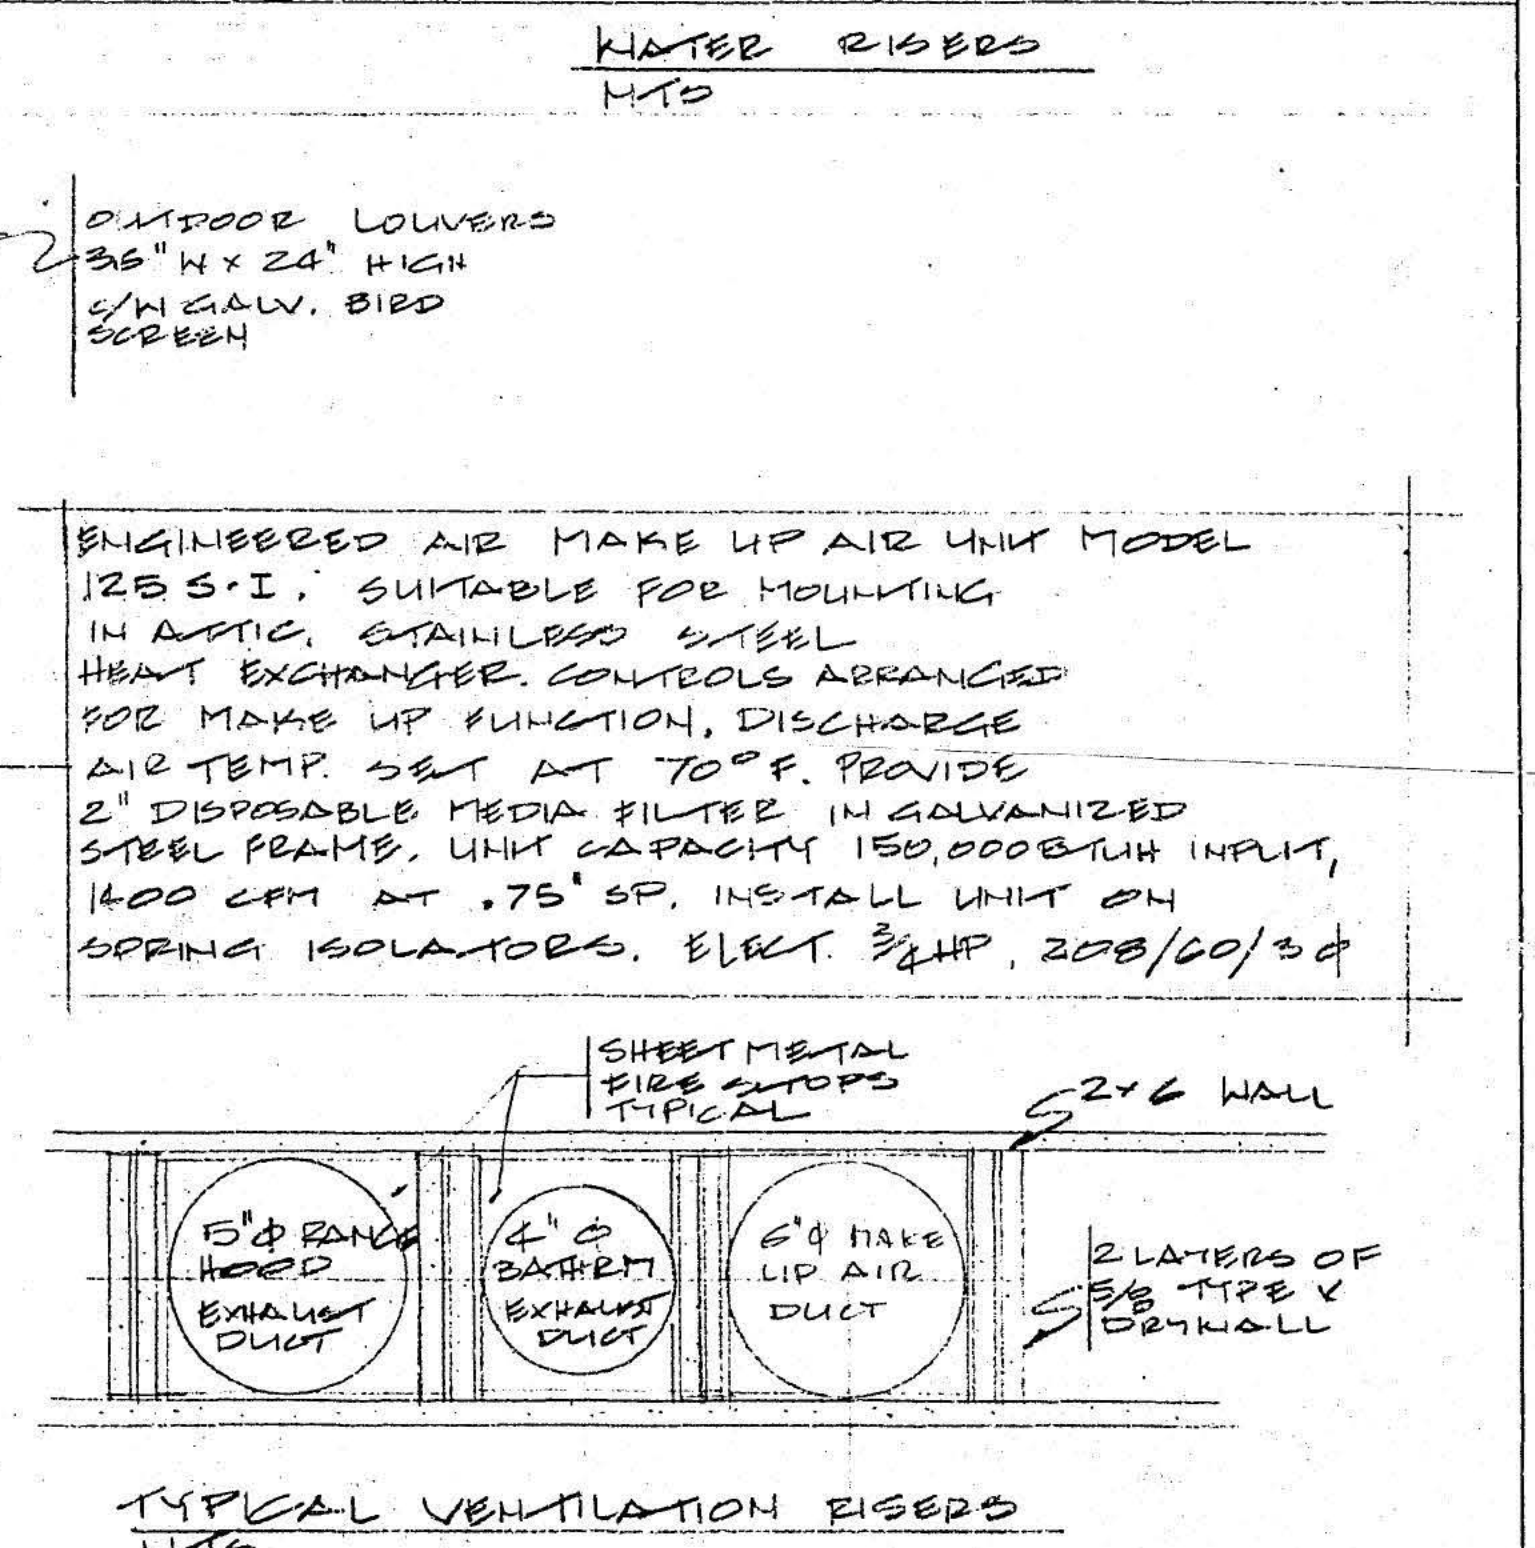 WATER RISERS
NTS
OUTDOOR LOUVERS
36" W x 24" HIGH
C/W GALV. BIRD
SCREEN
ENGINEERED AIR MAKE UP AIR UNIT MODEL
125 S.I. SUITABLE FOR MOUNTING
IN ATTIC. STAINLESS STEEL
HEAT EXCHANGER. CONTROLS ARRANGED
FOR MAKE UP FUNCTION. DISCHARGE
AIR TEMP. SET AT 70° F. PROVIDE
2" DISPOSABLE MEDIA FILTER IN GALVANIZED
STEEL FRAME. UNIT CAPACITY 150,000 BTUH INPUT,
1400 CFM AT .75" SP. INSTALL UNIT ON
SPRING ISOLATORS. ELECT. 3/4 HP, 208/60/3 φ
SHEET METAL
FIRE STOPS
TYPICAL
2x6 WALL
5"φ RANGE
HOOD
EXHAUST
DUCT
4" φ
BATHRM
EXHAUST
DUCT
6"φ MAKE
UP AIR
DUCT
2 LAYERS OF
5/8 TYPE X
DRYWALL
TYPICAL VENTILATION RISERS
NTS